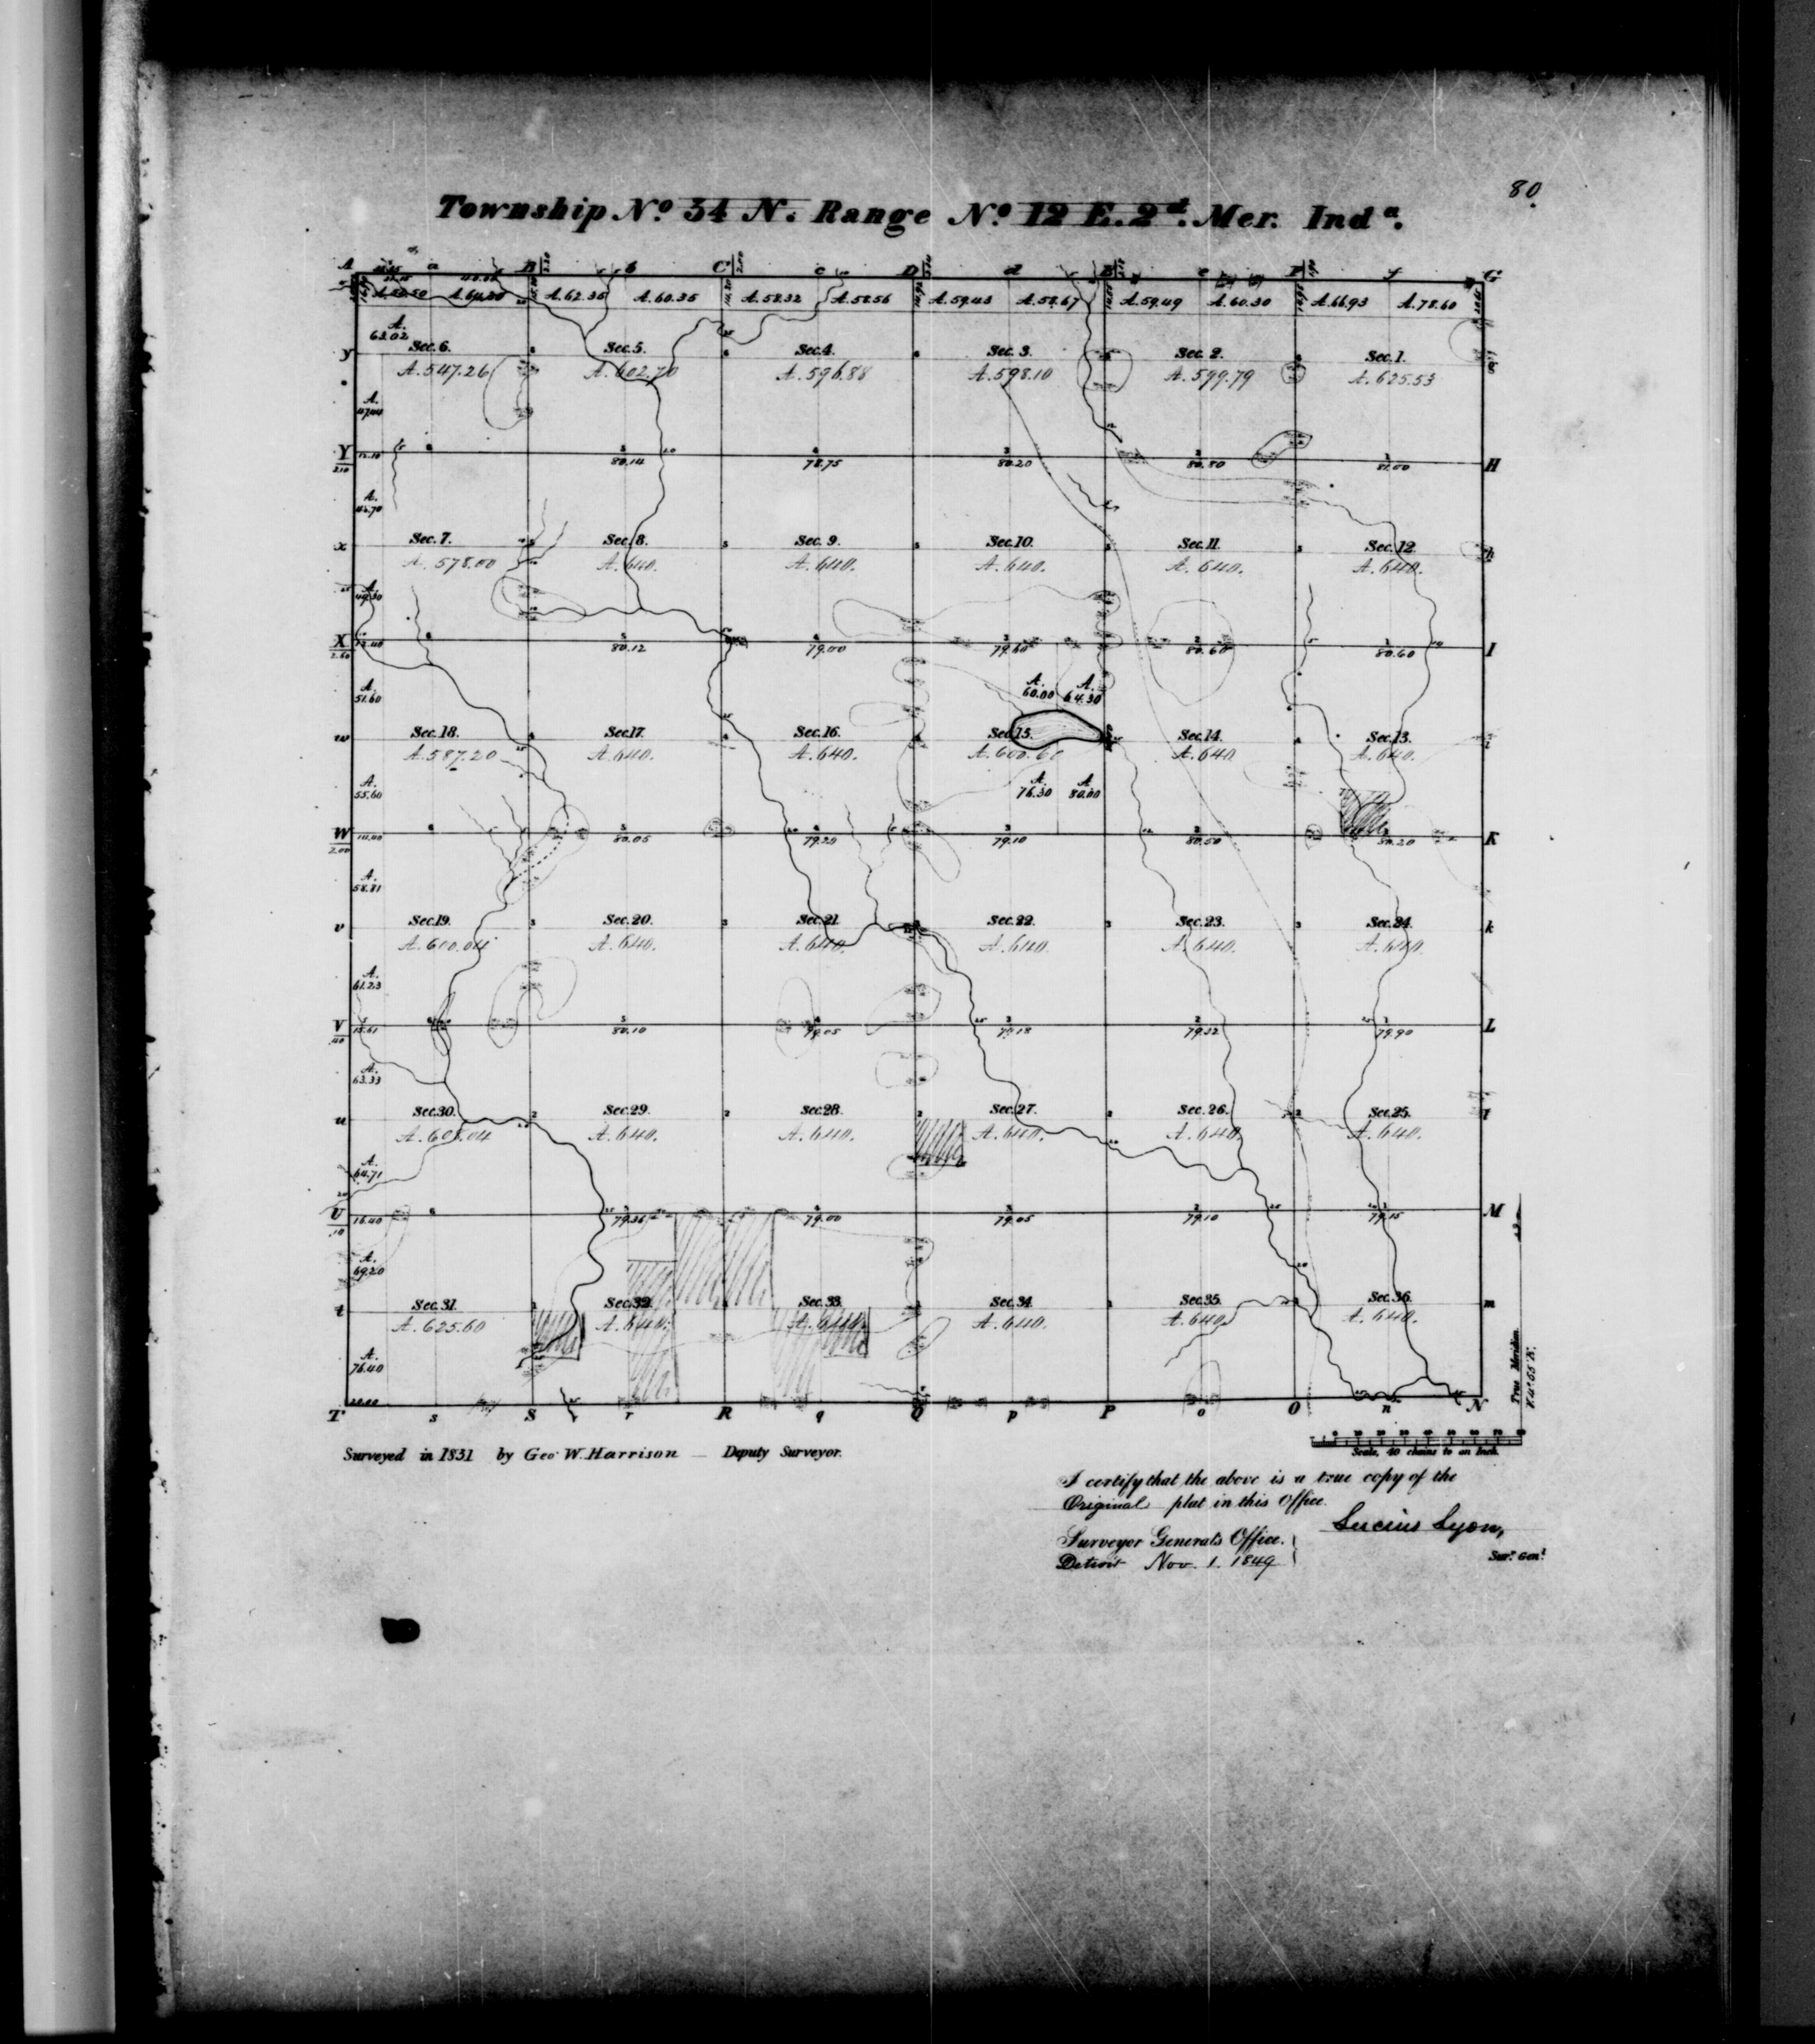 80.
Township No. 34 N. Range No. 12 E. 2d. Mer. Inda.
A a B b C c D d E e F f G
A. 62.35 A. 60.35 A. 58.32 A. 58.56 A. 59.43 A. 58.67 A. 59.49 A. 60.30 A. 66.93 A. 78.60
A. 63.02
y Sec. 6. Sec. 5. Sec. 4. Sec. 3. Sec. 2. Sec. 1. g
A. 547.26 A. 602.70 A. 596.88 A. 598.10 A. 599.79 A. 625.53
Y 80.14 78.75 80.20 80.80 81.00 H
A. 46.70
x Sec. 7. Sec. 8. Sec. 9. Sec. 10. Sec. 11. Sec. 12. h
A. 578.00 A. 640. A. 640. A. 640. A. 640. A. 640.
A. 49.30
X 80.12 79.00 79.60 80.60 80.60 I
2.60
A. 51.60 A. 60.00 A. 64.30
w Sec. 18. Sec. 17. Sec. 16. Sec. 15. Sec. 14. Sec. 13. i
A. 587.20 A. 640. A. 640. A. 600.60 A. 640 A. 640.
A. 55.60 A. 76.30 A. 80.00
W 80.05 79.25 79.10 80.50 80.20 K
2.00
A. 58.81
v Sec. 19. Sec. 20. Sec. 21. Sec. 22. Sec. 23. Sec. 24. k
A. 600.04 A. 640. A. 640. A. 640. A. 640. A. 640.
A. 61.23
V 15.61 80.10 79.05 79.18 79.32 79.90 L
.40
A. 63.33
u Sec. 30. Sec. 29. Sec. 28. Sec. 27. Sec. 26. Sec. 25. l
A. 608.04 A. 640. A. 640. A. 640. A. 640. A. 640.
A. 64.71
U 16.40 79.36 79.00 79.05 79.10 79.15 M
.10
A. 69.20
t Sec. 31. Sec. 32. Sec. 33. Sec. 34. Sec. 35. Sec. 36. m
A. 625.60 A. 640. A. 640. A. 640. A. 640. A. 640.
A. 76.40
True Meridian
T s S r R q Q p P o O n N
Scale, 40 chains to an Inch.
Surveyed in 1831 by Geo. W. Harrison — Deputy Surveyor.
I certify that the above is a true copy of the
Original plat in this Office.
Lucius Lyon,
Surveyor General's Office.
Sur. Genl.
Detroit Nov. 1. 1849